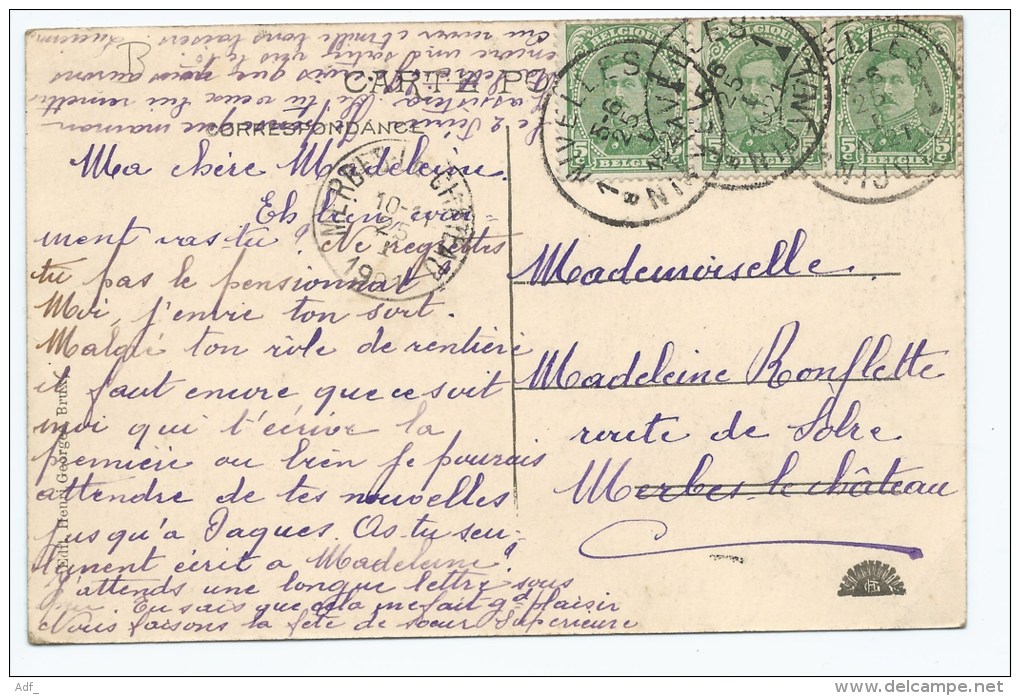 CARTE PO
CORRESPONDANCE
BELGIQUE
BELGIQUE
5c BELGIE 5c
5c
NIVELLES
NIJVEL
5-6
25
1921
MERBES-LE-CHATEAU
10-
25
1921
Ma chère Madeleine
Eh bien, com-
ment vas tu? Ne regrettes
tu pas le pensionnat
Moi, j'envie ton sort.
Malgré ton rôle de rentière
il faut encore que ce soit
moi qui t'écrive la
première ou bien je pourais
attendre de tes nouvelles
jusqu'à Paques. As-tu seu-
lement écrit à Madeleine?
J'attends une longue lettre sous
peu. Tu sais que cela me fait gd plaisir
Nous faisons la fête de soeur Supérieure
Mademoiselle.
Madeleine Ronflette
route de Solre
Merbes-le-château
Edit. Henri Georges, Brux.
Adf_
delcampe.net